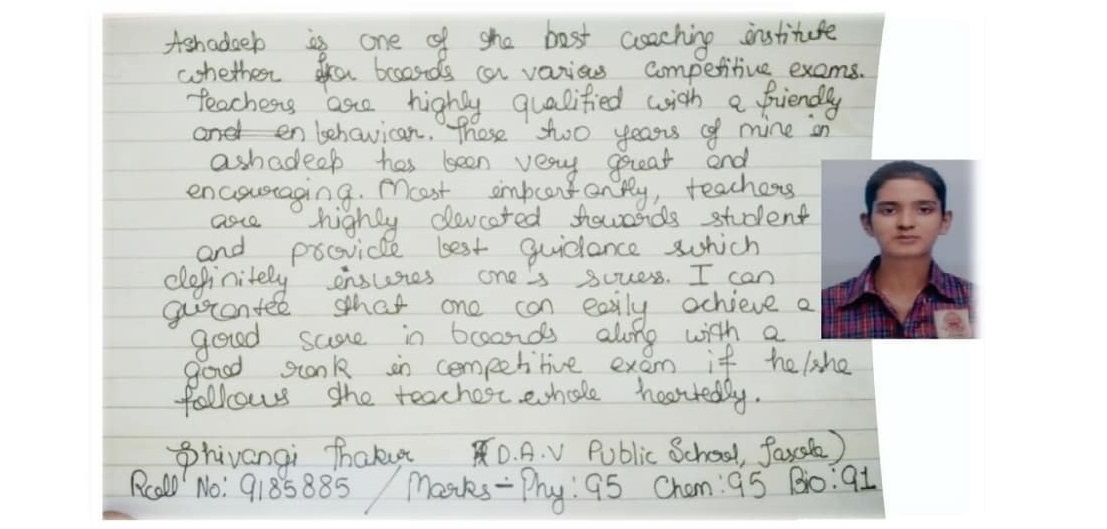 Ashadeep is one of the best coaching institute
whether for boards or various competitive exams.
Teachers are highly qualified with a friendly
and en behaviour. These two years of mine in
ashadeep has been very great and
encouraging. Most importantly, teachers
are highly devoted towards student
and provide best guidance which
definitely ensures one's sucess. I can
gurantee that one can easily achieve a
good score in boards along with a
good rank in competitive exam if he/she
follows the teacher whole heartedly.
Shivangi Thakur (D.A.V Public School, Jasola)
Roll No: 9185885 / Marks - Phy: 95 Chem: 95 Bio: 91